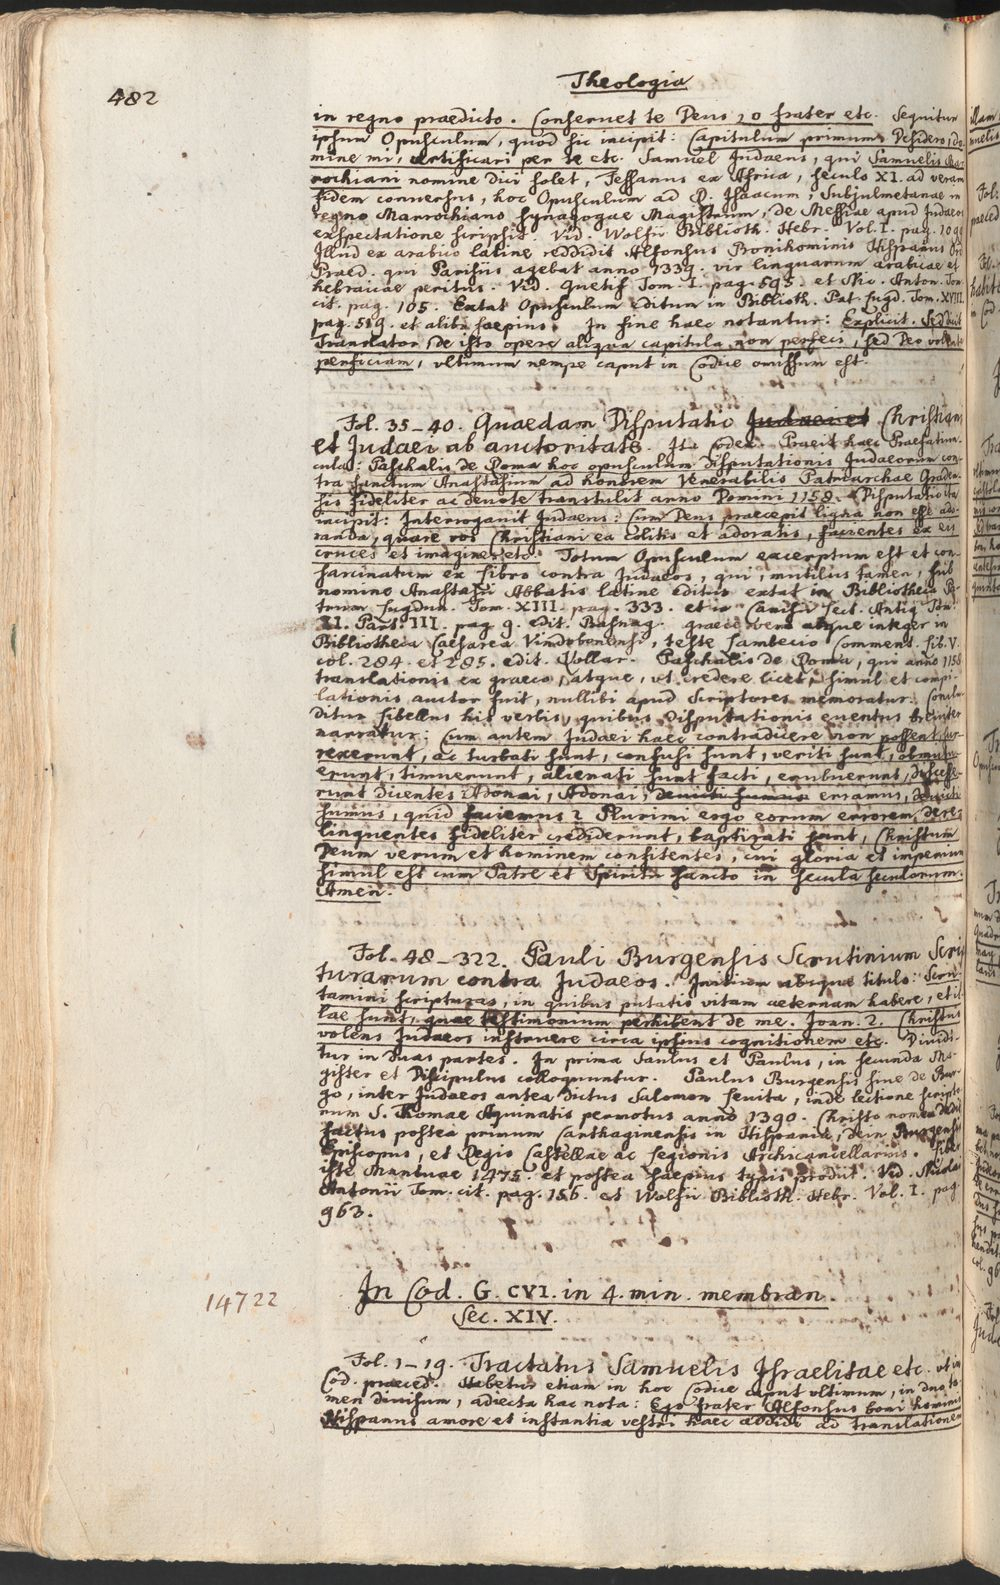 482
Theologia
in regno praedicto. Conseruet te Deus, o frater etc. Sequitur
ipsum Opusculum, quod sic incipit: Capitulum primum. Desidero, do-
mine mi, certificari per te etc. Samuel Judaeus, qui Samuelis Mar-
rochiani nomine dici solet, Fessanus ex Africa, seculo XI. ad veram
fidem conuersus, hoc Opusculum ad R. Isaacum, Subjulmetanae in
regno Marrochiano Synagogae Magistrum, de Messiae apud Judaeos
exspectatione scripsit. Vid. Wolfii Biblioth. Hebr. Vol. I. pag. 1099
Illud ex arabico latine reddidit Alfonsus Bonihominis Hispanus Ord.
Praed. qui Parisiis agebat anno 1339. vir linguarum arabicae et
hebraicae peritus. Vid. Quetif Tom. I. pag. 595. et Nic. Anton. Tom.
cit. pag. 105. Extat Opusculum editum in Biblioth. Pat. Lugd. Tom. XVIII.
pag. 519. et alibi saepius. In fine haec notantur: Explicit. Sed dicit
Translator, de isto opere aliqua capitula non perfeci, sed Deo volente
perficiam, vltimum nempe caput in Codice omissum est.
Fol. 35-40. Quaedam Disputatio Judaei et Christiani
et Judaei ab auctoritate. Ita Codex. Praeit haec Praefatiun-
cula: Paschalis de Roma hoc opusculum Disputationis Judaeorum con-
tra Sanctum Anastasium ad honorem Venerabilis Patriarchae Graden-
sis fideliter ac deuote transtulit anno Domini 1158. Disputatio ita
incipit: Interrogauit Judaeus: Cum Deus praecepit ligna non esse ado-
randa, quare vos Christiani ea colitis et adoratis, facientes ex eis
cruces et imagines etc. Totum Opusculum excerptum est et con-
sarcinatum ex Libro contra Judaeos, qui, mutilus tamen, sub
nomine Anastasii Abbatis latine editus extat in Bibliotheca Pa-
trum Lugdun. Tom. XIII. pag. 333. et in Canisii Lect. Antiq. Tom.
II. Part. III. pag. 9. edit. Basnag. graece vero atque integer in
Bibliotheca Caesarea Vindobonensi, teste Lambecio Comment. Lib. V.
col. 284. et 285. edit. Kollar. Paschalis de Roma, qui anno 1158
translationis ex graeco, atque, vt credere licet, simul et compi-
lationis auctor fuit, nullibi apud Scriptores memoratur. Conclu-
ditur Libellus his verbis, quibus Disputationis euentus breuiter
narratur: Cum autem Judaei haec contradicere non possent, sur-
rexerunt, ac turbati sunt, confusi sunt, veriti sunt, obmutu-
erunt, timuerunt, alienati sunt facti, erubuerunt, discesse-
runt dicentes Adonai, Adonai, deuicti sumus erramus, deuicti
sumus, quid faciemus? Plurimi ergo eorum errorem dere-
linquentes fideliter crediderunt, baptizati sunt, Christum
Deum verum et hominem confitentes, cui gloria et imperium
simul est cum Patre et Spiritu sancto in secula seculorum.
Amen.
Fol. 48-322. Pauli Burgensis Scrutinium Scrip-
turarum contra Judaeos. Initium absque titulo: Scru-
tamini scripturas, in quibus putatis vitam aeternam habere, et il-
lae sunt, quae testimonium perhibent de me. Joan. 2. Christus
volens Judaeos instruere circa ipsius cognitionem etc. Diuidi-
tur in duas partes. In prima Saulus et Paulus, in secunda Ma-
gister et Discipulus colloquuntur. Paulus Burgensis siue de Bur-
go, inter Judaeos antea dictus Salomon Leuita, inde lectione scripto-
rum S. Thomae Aquinatis permotus anno 1390. Christo nomen dedit
factus postea primum Carthaginensis in Hispania, dein Burgensis
Episcopus, et Regis Castellae ac Legionis Archicancellarius. Liber
iste Mantuae 1475. et postea saepius typis prodiit. Vid. Nicolai
Antonii Tom. cit. pag. 156. et Wolfii Biblioth. Hebr. Vol. I. pag.
963.
14722
In Cod. G. CVI. in 4. min. membran.
Sec. XIV.
Fol. 1-19. Tractatus Samuelis Israelitae etc. vt in
Cod. praeced. Habetur etiam in hoc Codice caput vltimum, in duo ta-
men diuisum, adiecta hac nota: Ego frater Alfonsus boni hominis
Hispanus amore et instantia vestri haec addidi ad translationem